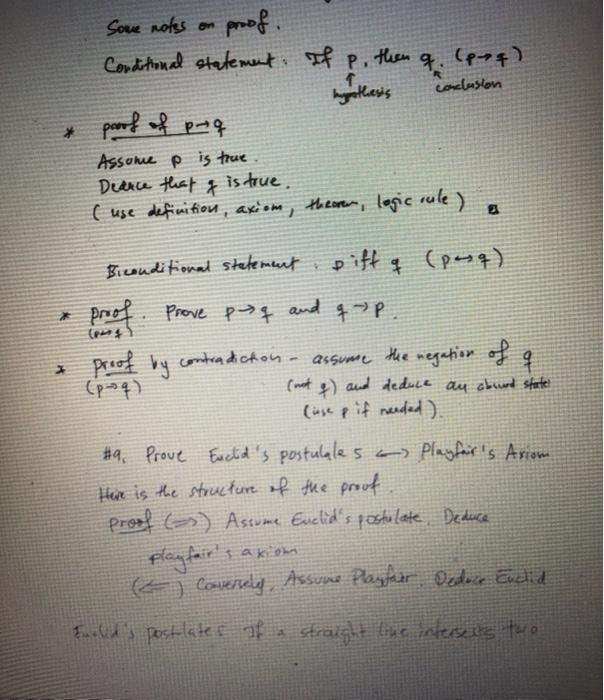 Some notes on proof.
Conditional statement: If p, then q. (p→q)
↑ hypothesis ↖ conclusion
* proof of p→q
Assume p is true.
Deduce that q is true.
(use definition, axiom, theorem, logic rule)
Biconditional statement: p iff q (p↔q)
* proof. Prove p→q and q→p.
(p↔q)
* proof by contradiction - assume the negation of q
(p→q) (not q) and deduce an absurd state
(use p if needed).
#9. Prove Euclid's postulate 5 ↔ Playfair's Axiom
Here is the structure of the proof.
proof (⇒) Assume Euclid's postulate. Deduce
playfair's axiom
(⇐) Conversely, Assume Playfair. Deduce Euclid
Euclid's postlate 5 If a straight line intersects two